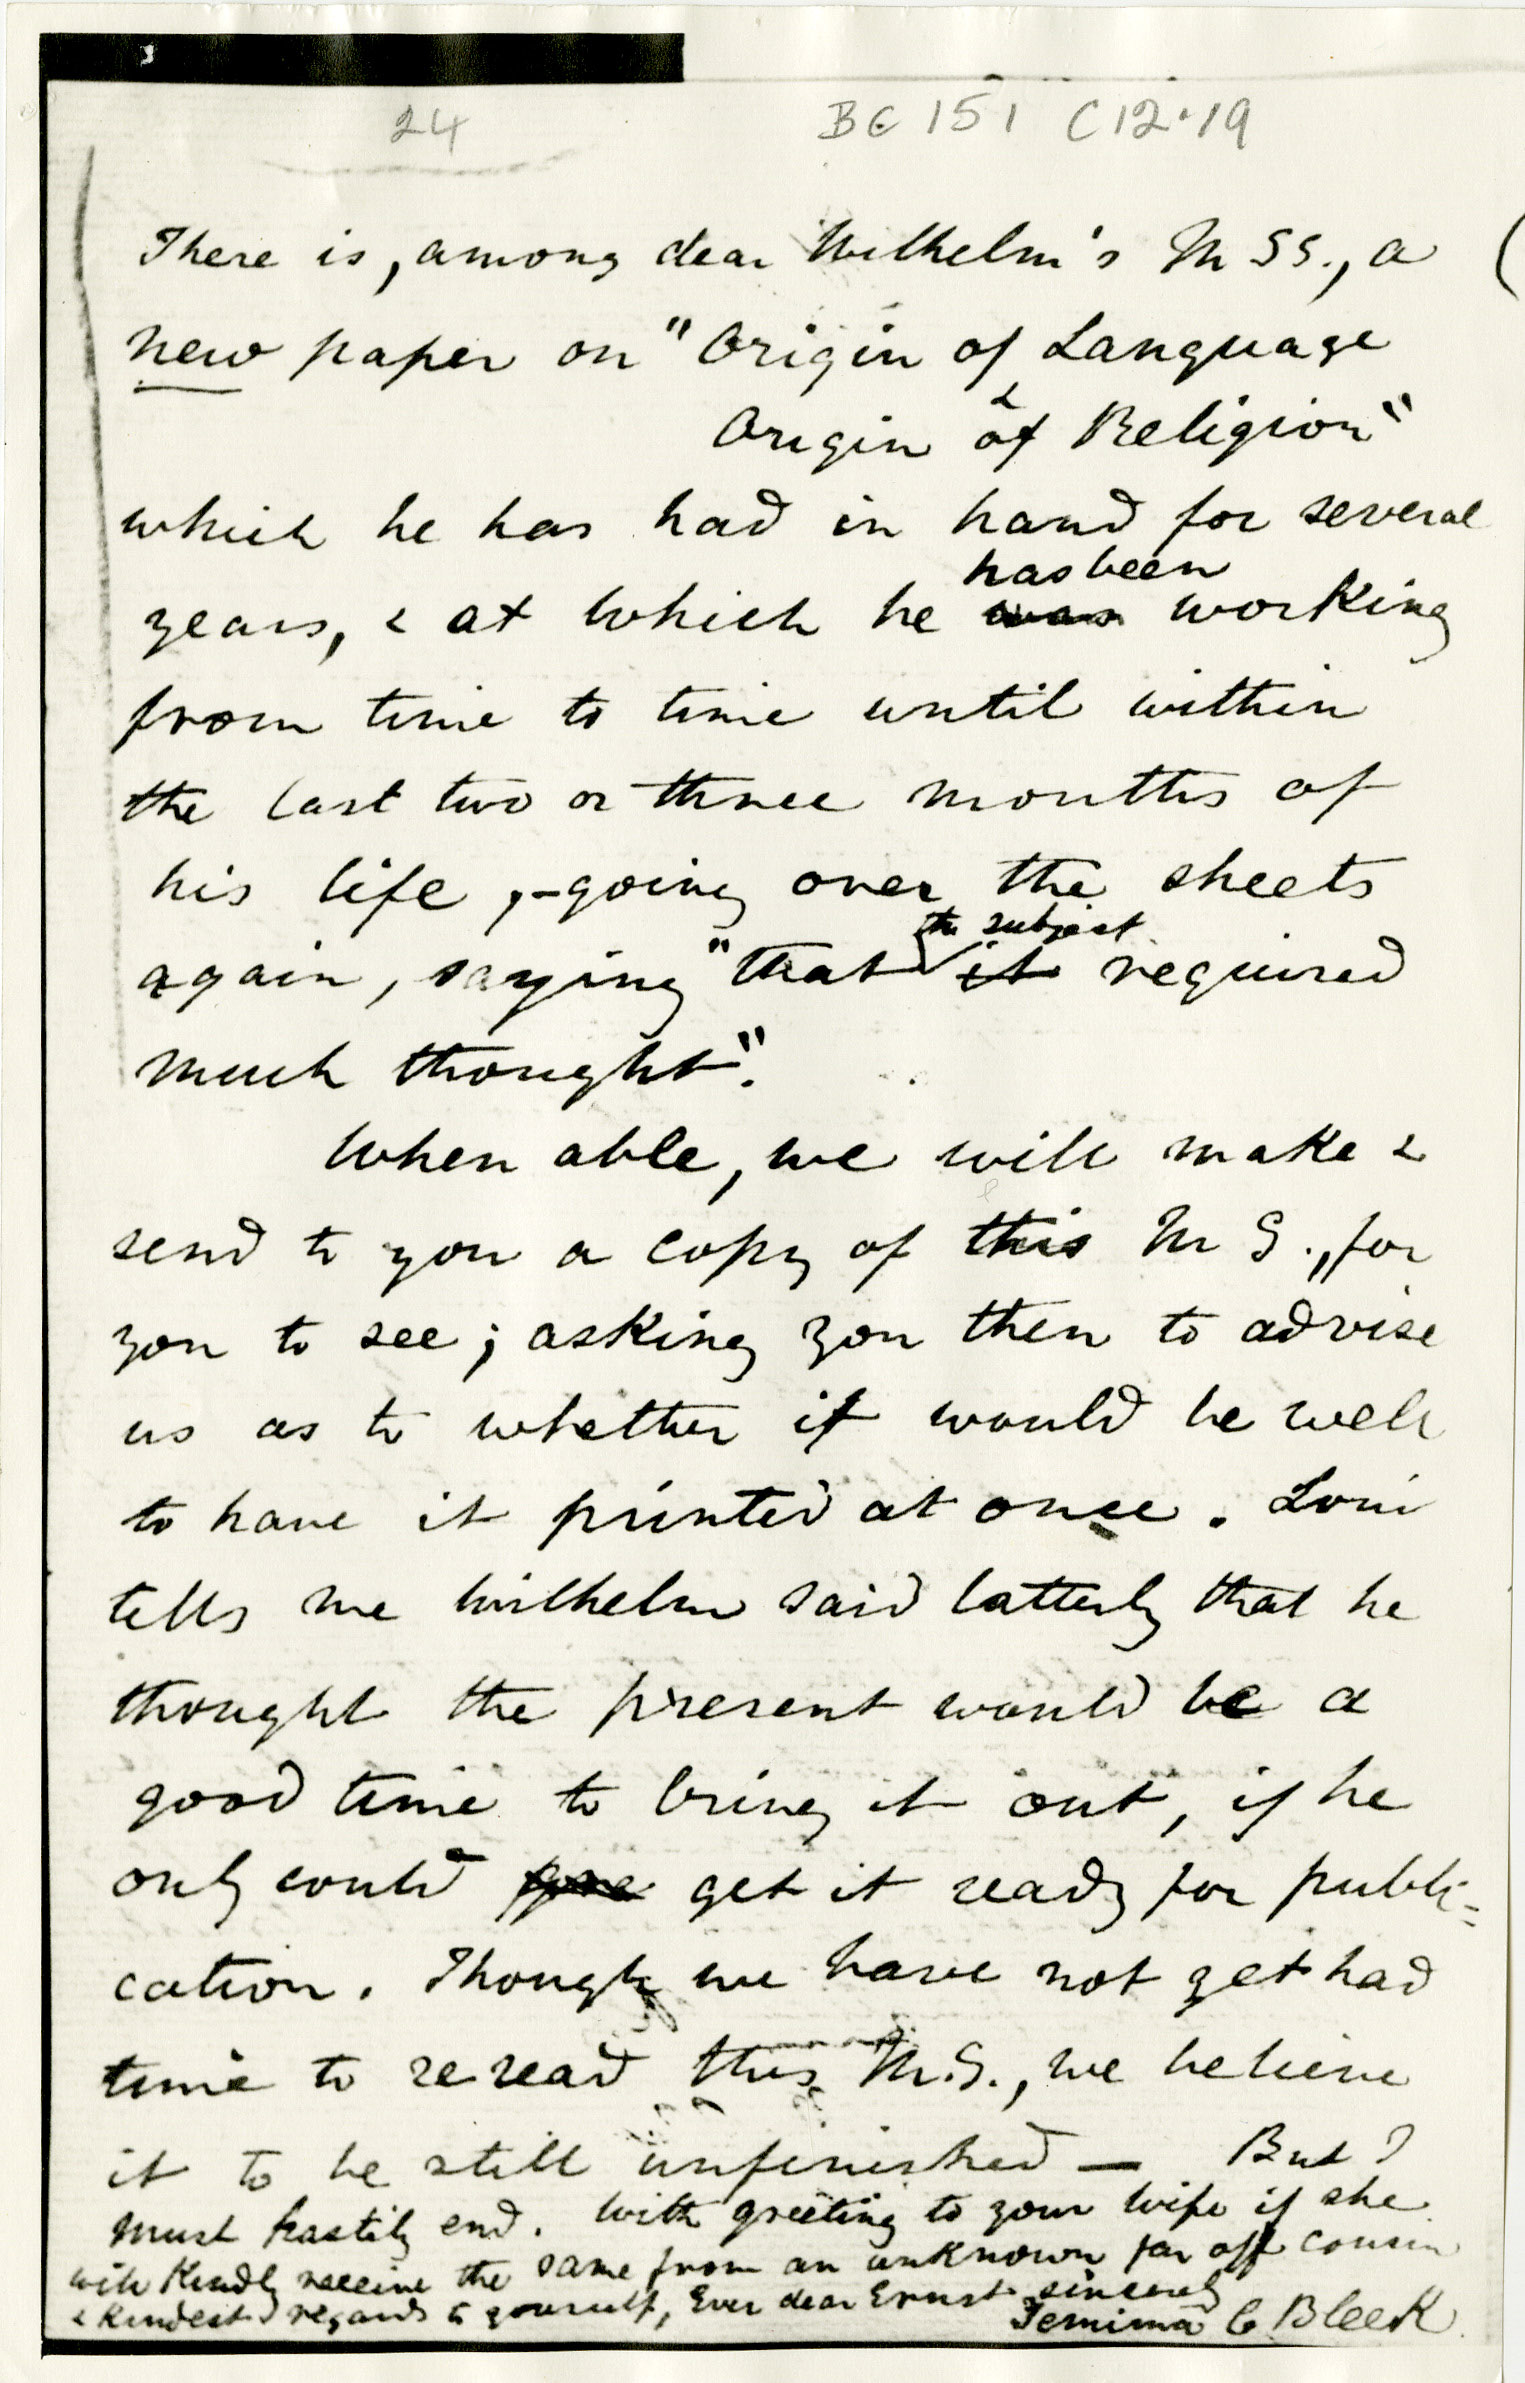 24 BC 151 C12.19
There is, among dear Wilhelm's MSS., a
new paper on "Origin of Language
&
Origin of Religion"
which he has had in hand for several
has been
years, & at which he was working
from time to time until within
the last two or three months of
his life, – going over the sheets
the subject
again, saying "that it required
much thought".
When able, we will make &
send to you a copy of this MS., for
you to see; asking you then to advise
us as to whether it would be well
to have it printed at once. Loui
tells me Wilhelm said latterly that he
thought the present would be a
good time to bring it out, if he
only could get it ready for publi=
cation. Though we have not yet had
time to reread this M.S., we believe
it to be still unfinished — But I
must hastily end. With greeting to your wife if she
will kindly receive the same from an unknown far off cousin
& kindest regards to yourself, Ever dear Ernst sincerely
Jemima C Bleek.